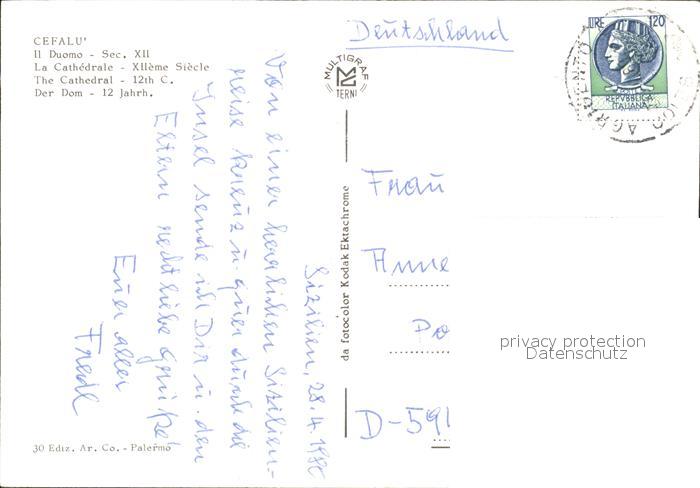 CEFALU'
Il Duomo - Sec. XII
La Cathédrale - XIIème Siècle
The Cathedral - 12th C.
Der Dom - 12 Jahrh.
Deutschland
MULTIGRAF
TERNI
LIRE 120
REPVBBLICA
ITALIANA
AGRIGENTO
Sizilien, 28.4.1980
Von einer herrlichen Sizilien-
reise kreuz u. quer durch die
Insel sende ich Dir u. den
Eltern recht liebe Grüße!
Euer aller
Fredl
da fotocolor Kodak Ektachrome
Frau
Anne
Po
D-591
privacy protection
Datenschutz
30 Ediz. Ar. Co. - Palermo